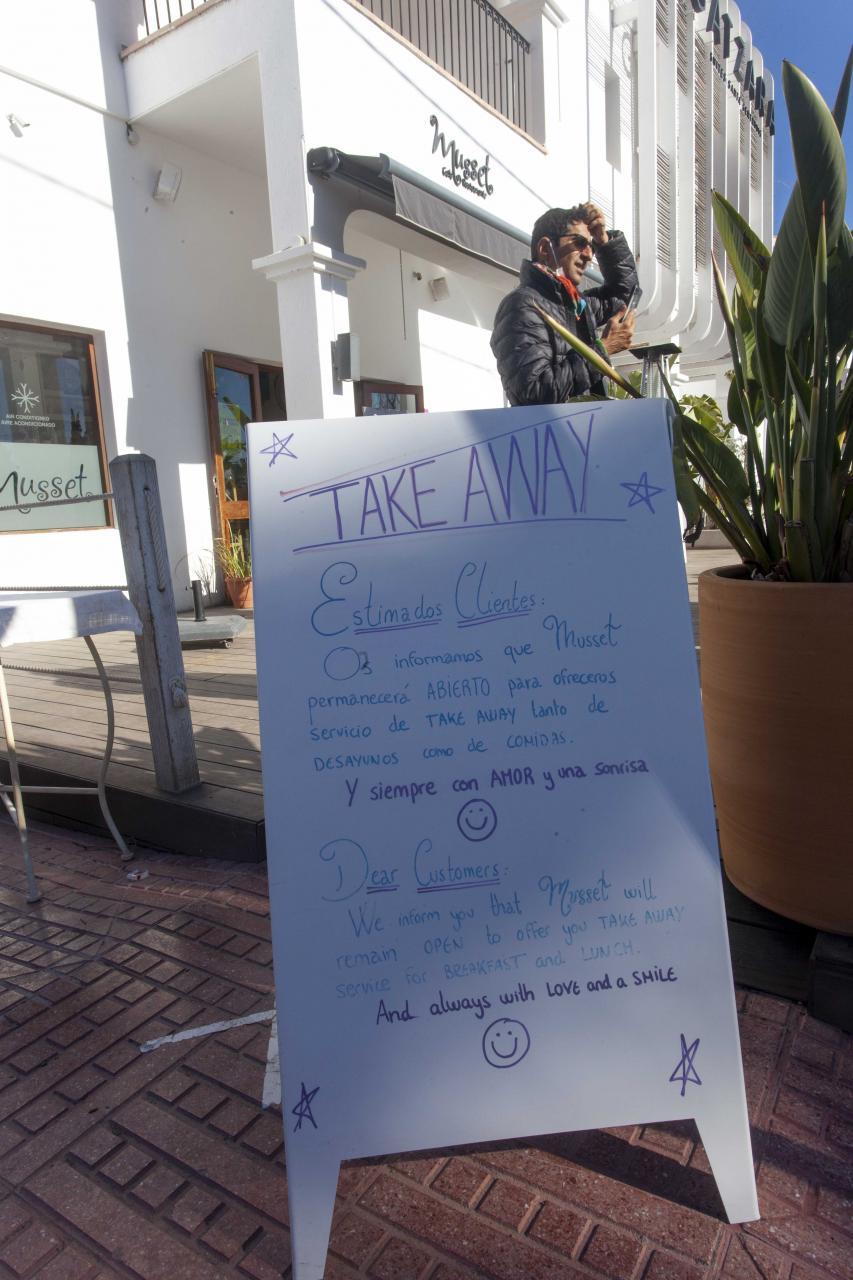 Musset
AIR CONDITIONED
AIRE ACONDICIONADO
Musset
TAKE AWAY
Estimados Clientes:
Os informamos que Musset
permanecerá ABIERTO para ofreceros
servicio de TAKE AWAY tanto de
DESAYUNOS como de COMIDAS.
Y siempre con AMOR y una sonrisa
Dear Customers:
We inform you that Musset will
remain OPEN to offer you TAKE AWAY
service for BREAKFAST and LUNCH.
And always with LOVE and a SMILE